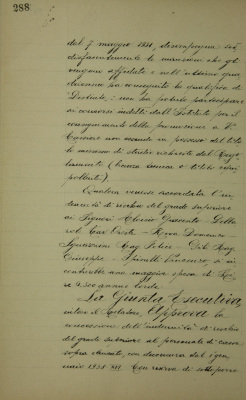 288
dal 7 maggio 1931, disimpegna
disimpegnando le mansioni che gli
vengono affidate e nell'ultimo qua
driennio ha conseguito la qualifica di
Distinto; non ha potuto partecipare
ai concorsi indetti dall'Istituto per il
conseguimento della promozione a V.
Cassiere non essendo in possesso del titolo
minimo di studio richiesto dal Rego
lamento (licenza tecnica o titolo equi
pollente).
Qualora venisse accordata l'in
dennità di rischio del grado superiore
ai Signori Giacinto
Cav. Oreste - Riva Domenico -
Rag. Felice - Rag.
Giuseppe - Spinelli Vincenzo, si in
contrerebbe una maggior spesa di Li
re 4.200 annue lorde.
La Giunta Esecutiva,
inteso il Relatore, Approva la
concessione dell'indennità di rischio
del grado superiore al personale di cassa
sopra elencato, con decorrenza dal 1° gen
naio 1938 XVI. Con riserva di sottoporre